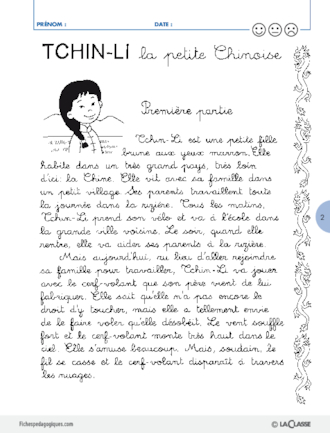 PRÉNOM :
DATE :
TCHIN-LI la petite Chinoise
Première partie
Tchin-Li est une petite fille
brune aux yeux marron. Elle
habite dans un très grand pays, très loin
d'ici: la Chine. Elle vit avec sa famille dans
un petit village. Ses parents travaillent toute
la journée dans la rizière. Tous les matins,
Tchin-Li prend son vélo et va à l'école dans
la grande ville voisine. Le soir, quand elle
rentre, elle va aider ses parents à la rizière.
Mais aujourd'hui, au lieu d'aller rejoindre
sa famille pour travailler, Tchin-Li va jouer
avec le cerf-volant que son père vient de lui
fabriquer. Elle sait qu'elle n'a pas encore le
droit d'y toucher, mais elle a tellement envie
de le faire voler qu'elle désobéit. Le vent souffle
fort et le cerf-volant monte très haut dans le
ciel. Elle s'amuse beaucoup. Mais, soudain, le
fil se casse et le cerf-volant disparaît à travers
les nuages.
2
Fichespedagogiques.com
© LA CLASSE